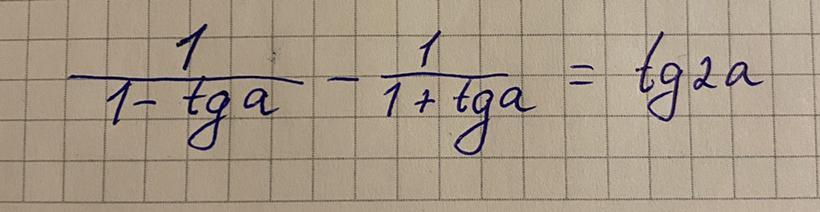 1/(1 - tg a) - 1/(1 + tg a) = tg2a